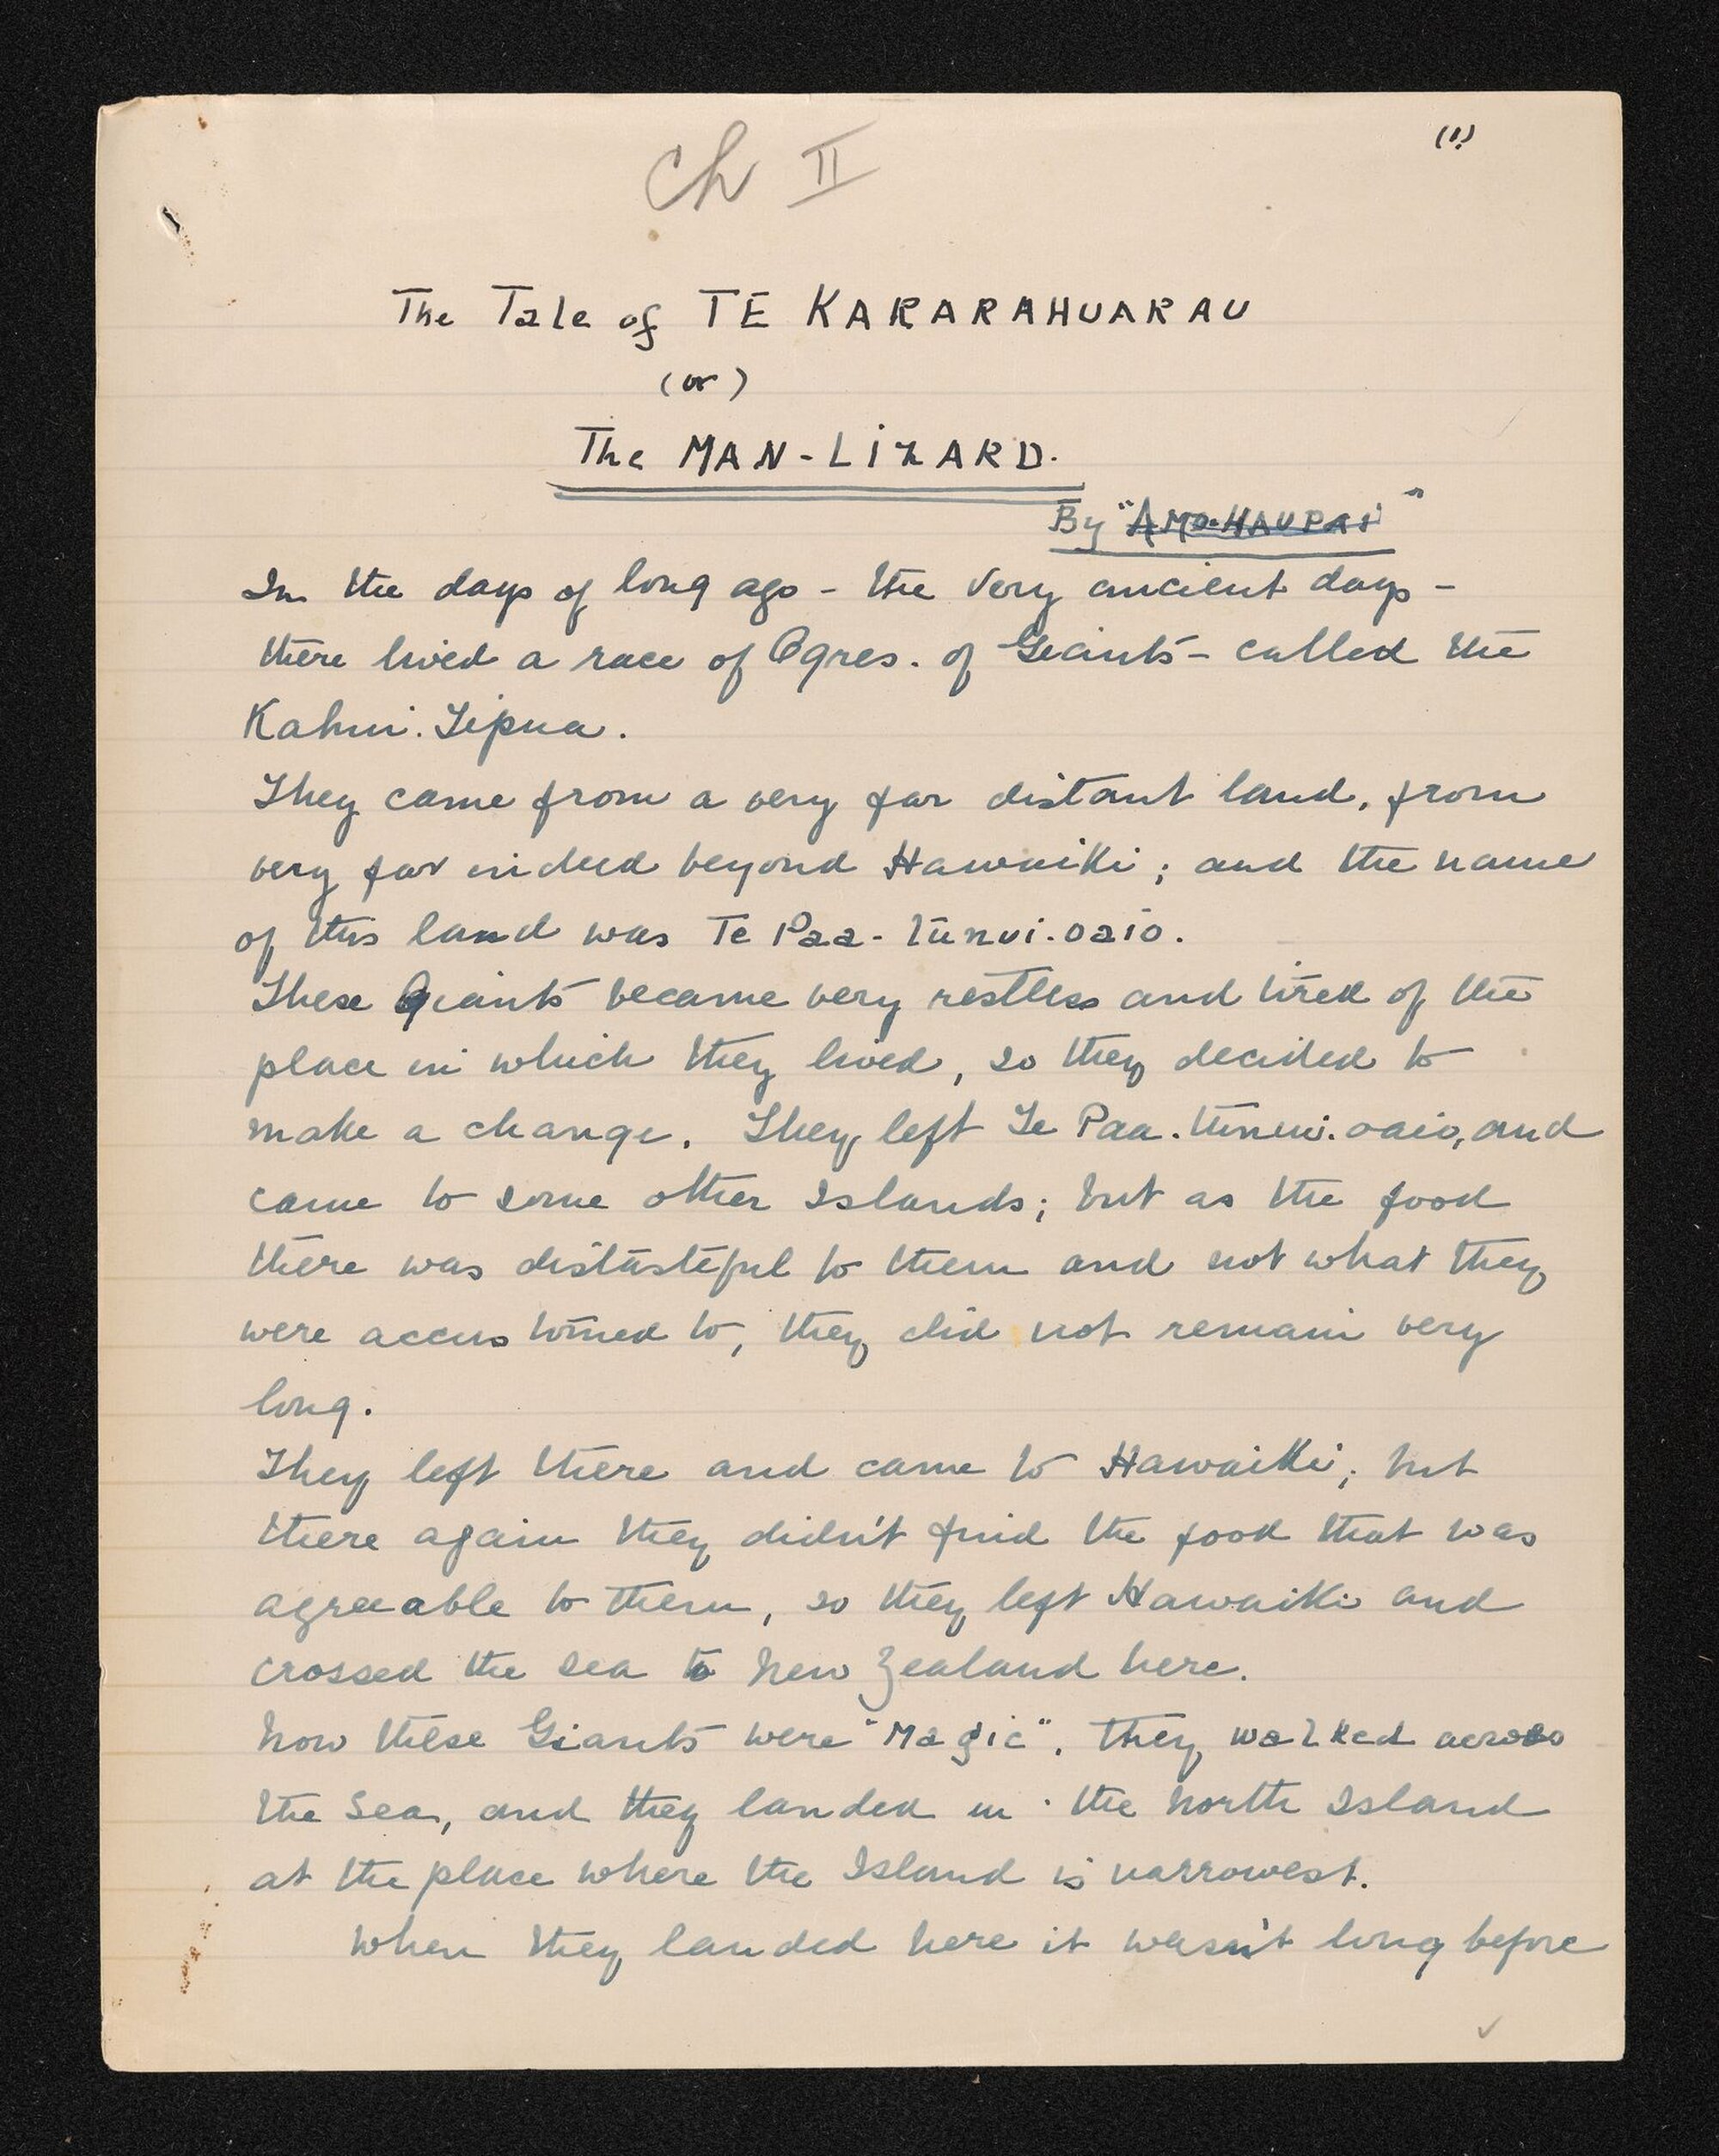 Ch II
(1)
The Tale of TE KARARAHUARAU
(or)
The MAN-LIZARD.
By "AMO-HAUPAI"
In the days of long ago - the very ancient days -
there lived a race of Ogres. of Giants - called the
Kahui. Tipua.
They came from a very far distant land, from
very far indeed beyond Hawaiki; and the name
of this land was Te Paa-tunui.oaio.
These Giants became very restless and tired of the
place in which they lived, so they decided to
make a change. They left Te Paa.tunui.oaio, and
came to some other Islands; but as the food
there was distasteful to them and not what they
were accustomed to, they did not remain very
long.
They left there and came to Hawaiki; but
there again they didn't find the food that was
agreeable to them, so they left Hawaiki and
crossed the sea to New Zealand here.
Now these Giants were "Magic". They walked across
the sea, and they landed in the North Island
at the place where the Island is narrowest.
When they landed here it wasn't long before